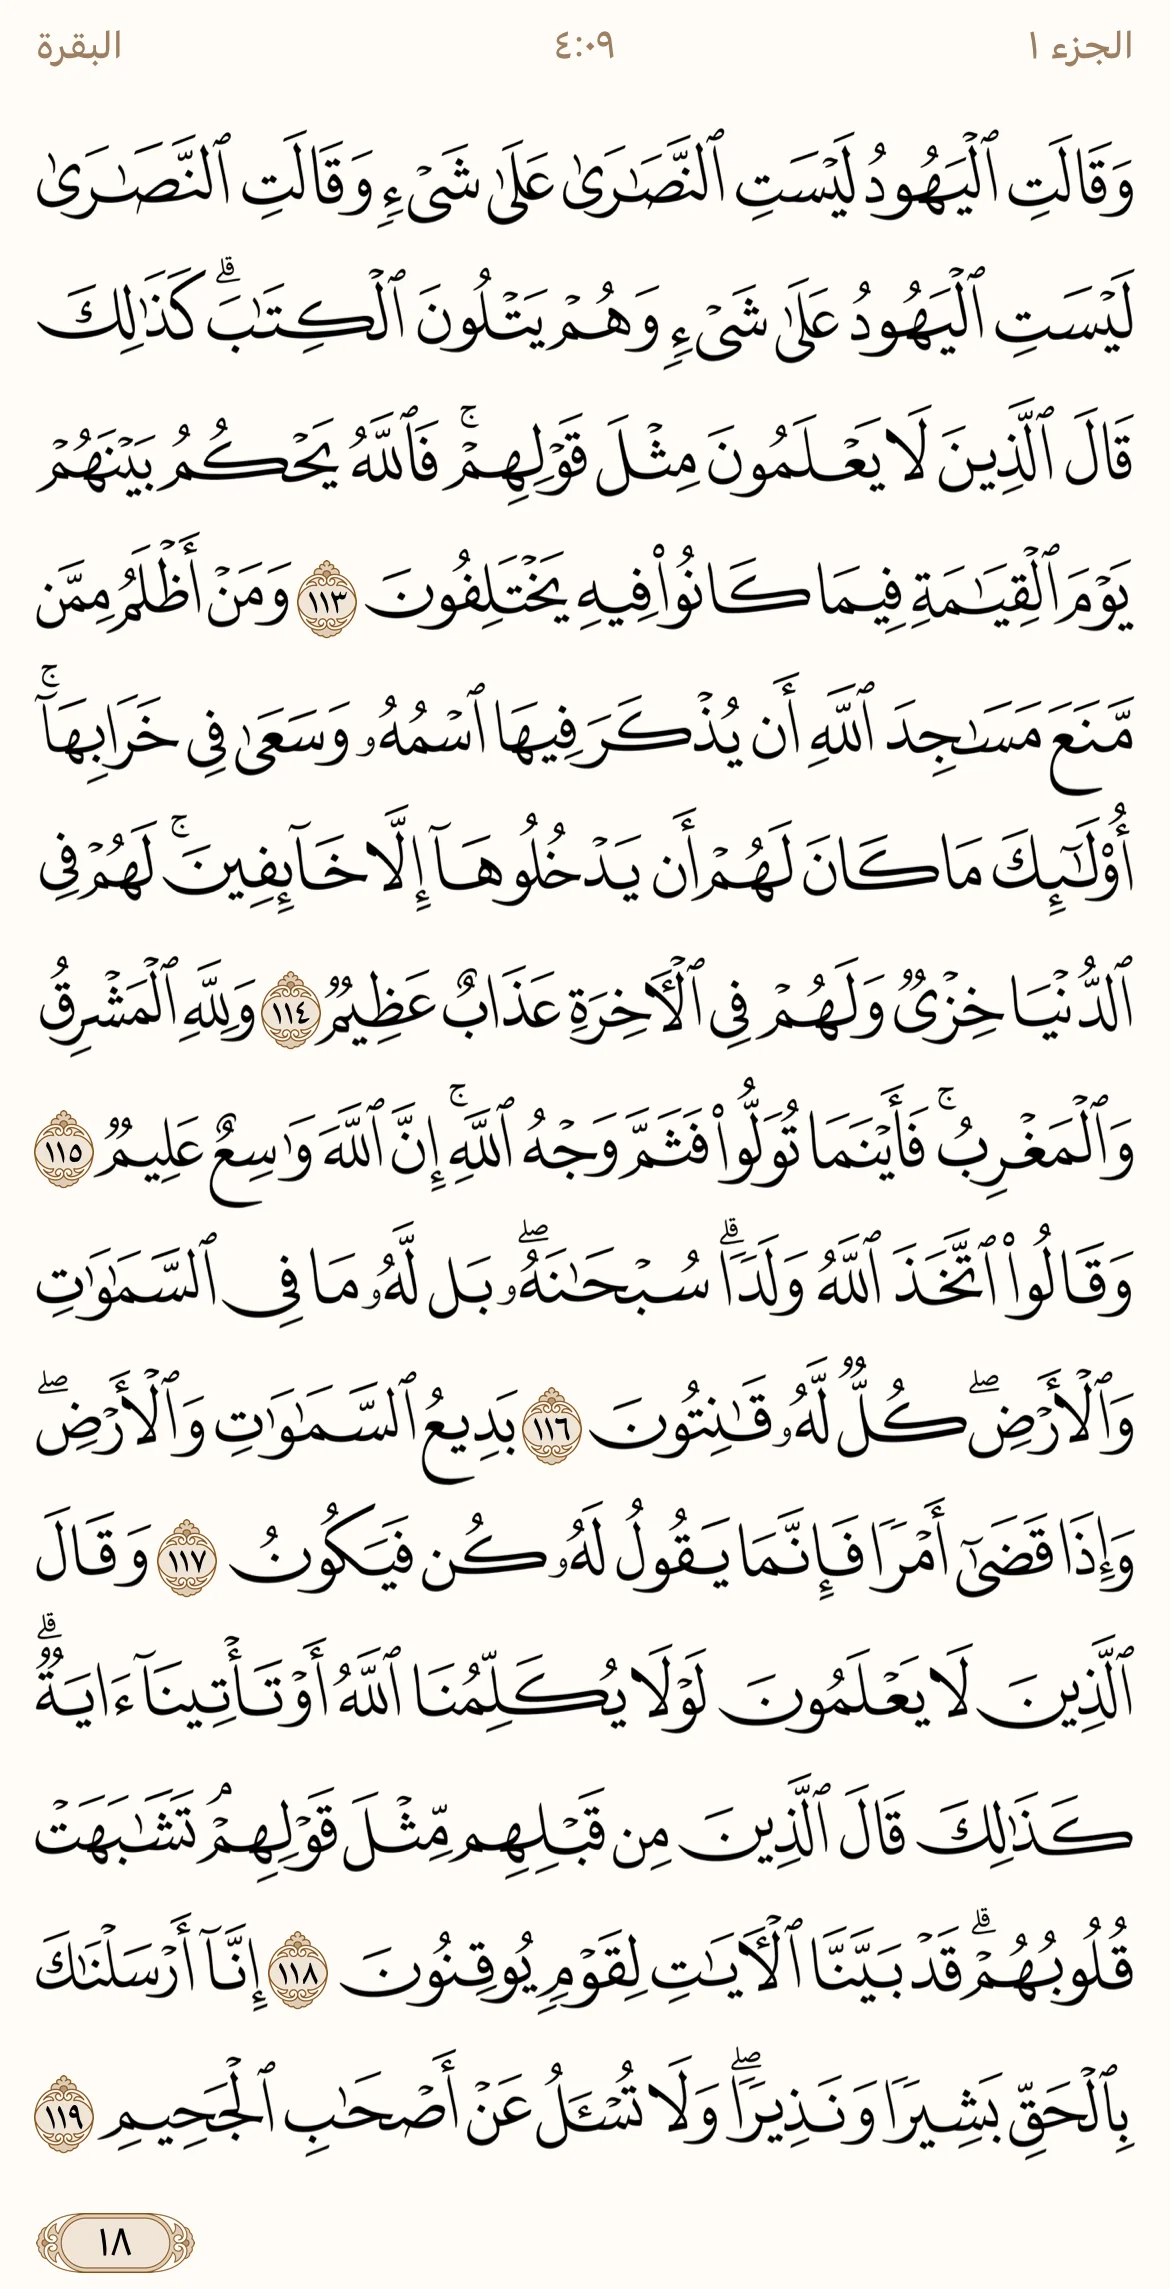 الجزء ١
٤:٠٩
البقرة
وَقَالَتِ ٱلْيَهُودُ لَيْسَتِ ٱلنَّصَٰرَىٰ عَلَىٰ شَىْءٍ وَقَالَتِ ٱلنَّصَٰرَىٰ
لَيْسَتِ ٱلْيَهُودُ عَلَىٰ شَىْءٍ وَهُمْ يَتْلُونَ ٱلْكِتَٰبَ ۗ كَذَٰلِكَ
قَالَ ٱلَّذِينَ لَا يَعْلَمُونَ مِثْلَ قَوْلِهِمْ ۚ فَٱللَّهُ يَحْكُمُ بَيْنَهُمْ
يَوْمَ ٱلْقِيَٰمَةِ فِيمَا كَانُوا۟ فِيهِ يَخْتَلِفُونَ ١١٣ وَمَنْ أَظْلَمُ مِمَّن
مَّنَعَ مَسَٰجِدَ ٱللَّهِ أَن يُذْكَرَ فِيهَا ٱسْمُهُۥ وَسَعَىٰ فِى خَرَابِهَآ ۚ
أُو۟لَٰٓئِكَ مَا كَانَ لَهُمْ أَن يَدْخُلُوهَآ إِلَّا خَآئِفِينَ ۚ لَهُمْ فِى
ٱلدُّنْيَا خِزْىٌ وَلَهُمْ فِى ٱلْءَاخِرَةِ عَذَابٌ عَظِيمٌ ١١٤ وَلِلَّهِ ٱلْمَشْرِقُ
وَٱلْمَغْرِبُ ۚ فَأَيْنَمَا تُوَلُّوا۟ فَثَمَّ وَجْهُ ٱللَّهِ ۚ إِنَّ ٱللَّهَ وَٰسِعٌ عَلِيمٌ ١١٥
وَقَالُوا۟ ٱتَّخَذَ ٱللَّهُ وَلَدًا ۗ سُبْحَٰنَهُۥ ۖ بَل لَّهُۥ مَا فِى ٱلسَّمَٰوَٰتِ
وَٱلْأَرْضِ ۖ كُلٌّ لَّهُۥ قَٰنِتُونَ ١١٦ بَدِيعُ ٱلسَّمَٰوَٰتِ وَٱلْأَرْضِ ۖ
وَإِذَا قَضَىٰٓ أَمْرًا فَإِنَّمَا يَقُولُ لَهُۥ كُن فَيَكُونُ ١١٧ وَقَالَ
ٱلَّذِينَ لَا يَعْلَمُونَ لَوْلَا يُكَلِّمُنَا ٱللَّهُ أَوْ تَأْتِينَآ ءَايَةٌ ۗ
كَذَٰلِكَ قَالَ ٱلَّذِينَ مِن قَبْلِهِم مِّثْلَ قَوْلِهِمْ ۘ تَشَٰبَهَتْ
قُلُوبُهُمْ ۗ قَدْ بَيَّنَّا ٱلْءَايَٰتِ لِقَوْمٍ يُوقِنُونَ ١١٨ إِنَّآ أَرْسَلْنَٰكَ
بِٱلْحَقِّ بَشِيرًا وَنَذِيرًا ۖ وَلَا تُسْـَٔلُ عَنْ أَصْحَٰبِ ٱلْجَحِيمِ ١١٩
١٨